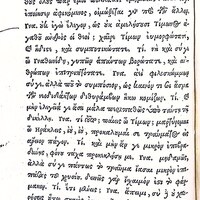 ὅλους παρ' ἐμοὶ πολλάκις
ἐποίησεν ἀφικόμενος, οἰμώξεται γὰρ πρὸ τῶν ἄλλων.
γνα. οὐκ ἐγὼ ἔλεγον, ὡς οὐκ ἀμελήσουσι Τίμωνος ἀ-
γαθοῦ ἀνδρὸς οἱ θεοί; χαῖρε Τίμων εὐμορφότατε,
καὶ ἥδιστε, καὶ συμποτικώτατε. τι. νὴ καὶ σύ γε
ὦ γναθωνίδη, γυπῶν ἁπάντων βορώτατε, καὶ ἀν-
θρώπων ἐπιτριπτότατε. γνα. ἀεὶ φιλοσκώμμων
σύ γε. ἀλλὰ ποῦ τὸ συμπόσιον, ὡς καινόν τί σοι ᾆσμα
τῶν νεοδιδάκτων διθυράμβων ἥκω κομίζων. τι. καὶ
μὴν ἐλεγεῖά γε ᾄσῃ μάλα περιπαθῶς ὑπὸ ταύτῃ τῇ
δικέλλῃ. γνα. τί τοῦτο; παίεις ὦ τίμων; μαρτύρομαι
ὦ ἡράκλεις, ἰοὺ, ἰοὺ, προκαλοῦμαί σε τραύματος εἰς
ἄρειον πάγον. τι. καὶ μὴν ἄν γε μικρὸν ἐπιβρα-
δύνῃς, φόνου τάχα προκεκλήσομαι. γνα. μηδαμῶς,
ἀλλὰ σύ γε πάντως τὸ τραῦμα ἴασαι, μικρὸν ἐπι-
πάσας τοῦ χρυσίου. δεινῶς γὰρ ἴσχαιμόν ἐστι τὸ φάρ-
μακον. τι. ἔτι μένεις; γνα. ἄπειμι, σὺ δ' οὐ χαι-